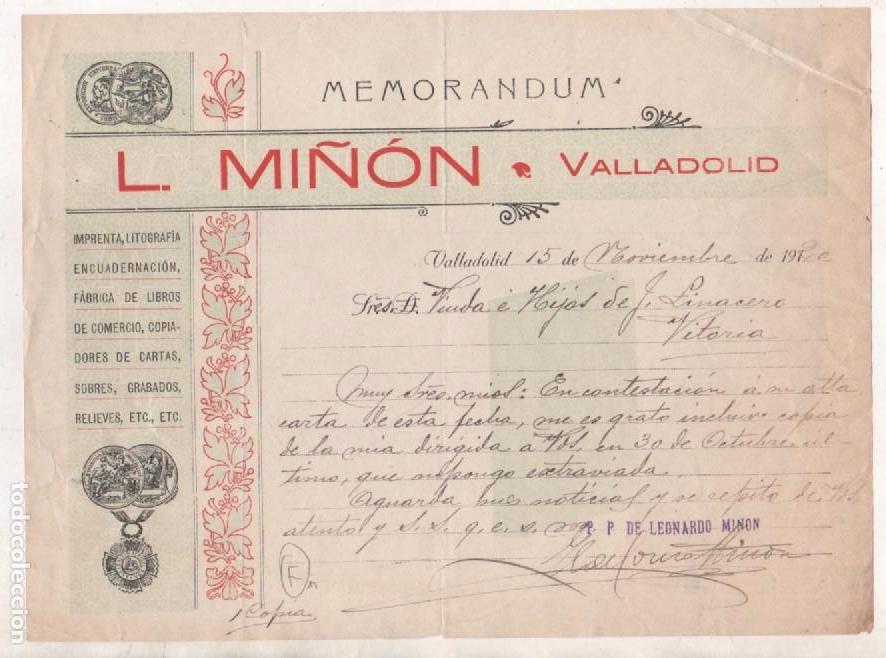 MEMORANDUM
L. MIÑÓN • VALLADOLID
IMPRENTA, LITOGRAFÍA
ENCUADERNACIÓN,
FÁBRICA DE LIBROS
DE COMERCIO, COPIA-
DORES DE CARTAS,
SOBRES, GRABADOS,
RELIEVES, ETC., ETC.
Valladolid 15 de Noviembre de 1920
Sres. D. Viuda é Hijos de J. Linacero
Vitoria
Muy Sres. mios: En contestación á su atta
carta de esta fecha, me es grato incluir copia
de la mia dirigida a Vds. en 30 de Octubre úl-
timo, que supongo extraviada.
Aguarda sus noticias y se repite de Vds.
atento y s. s. q. e. s. m.
P. P. DE LEONARDO MIÑON
Miñón
F
1 Copia
todocoleccion